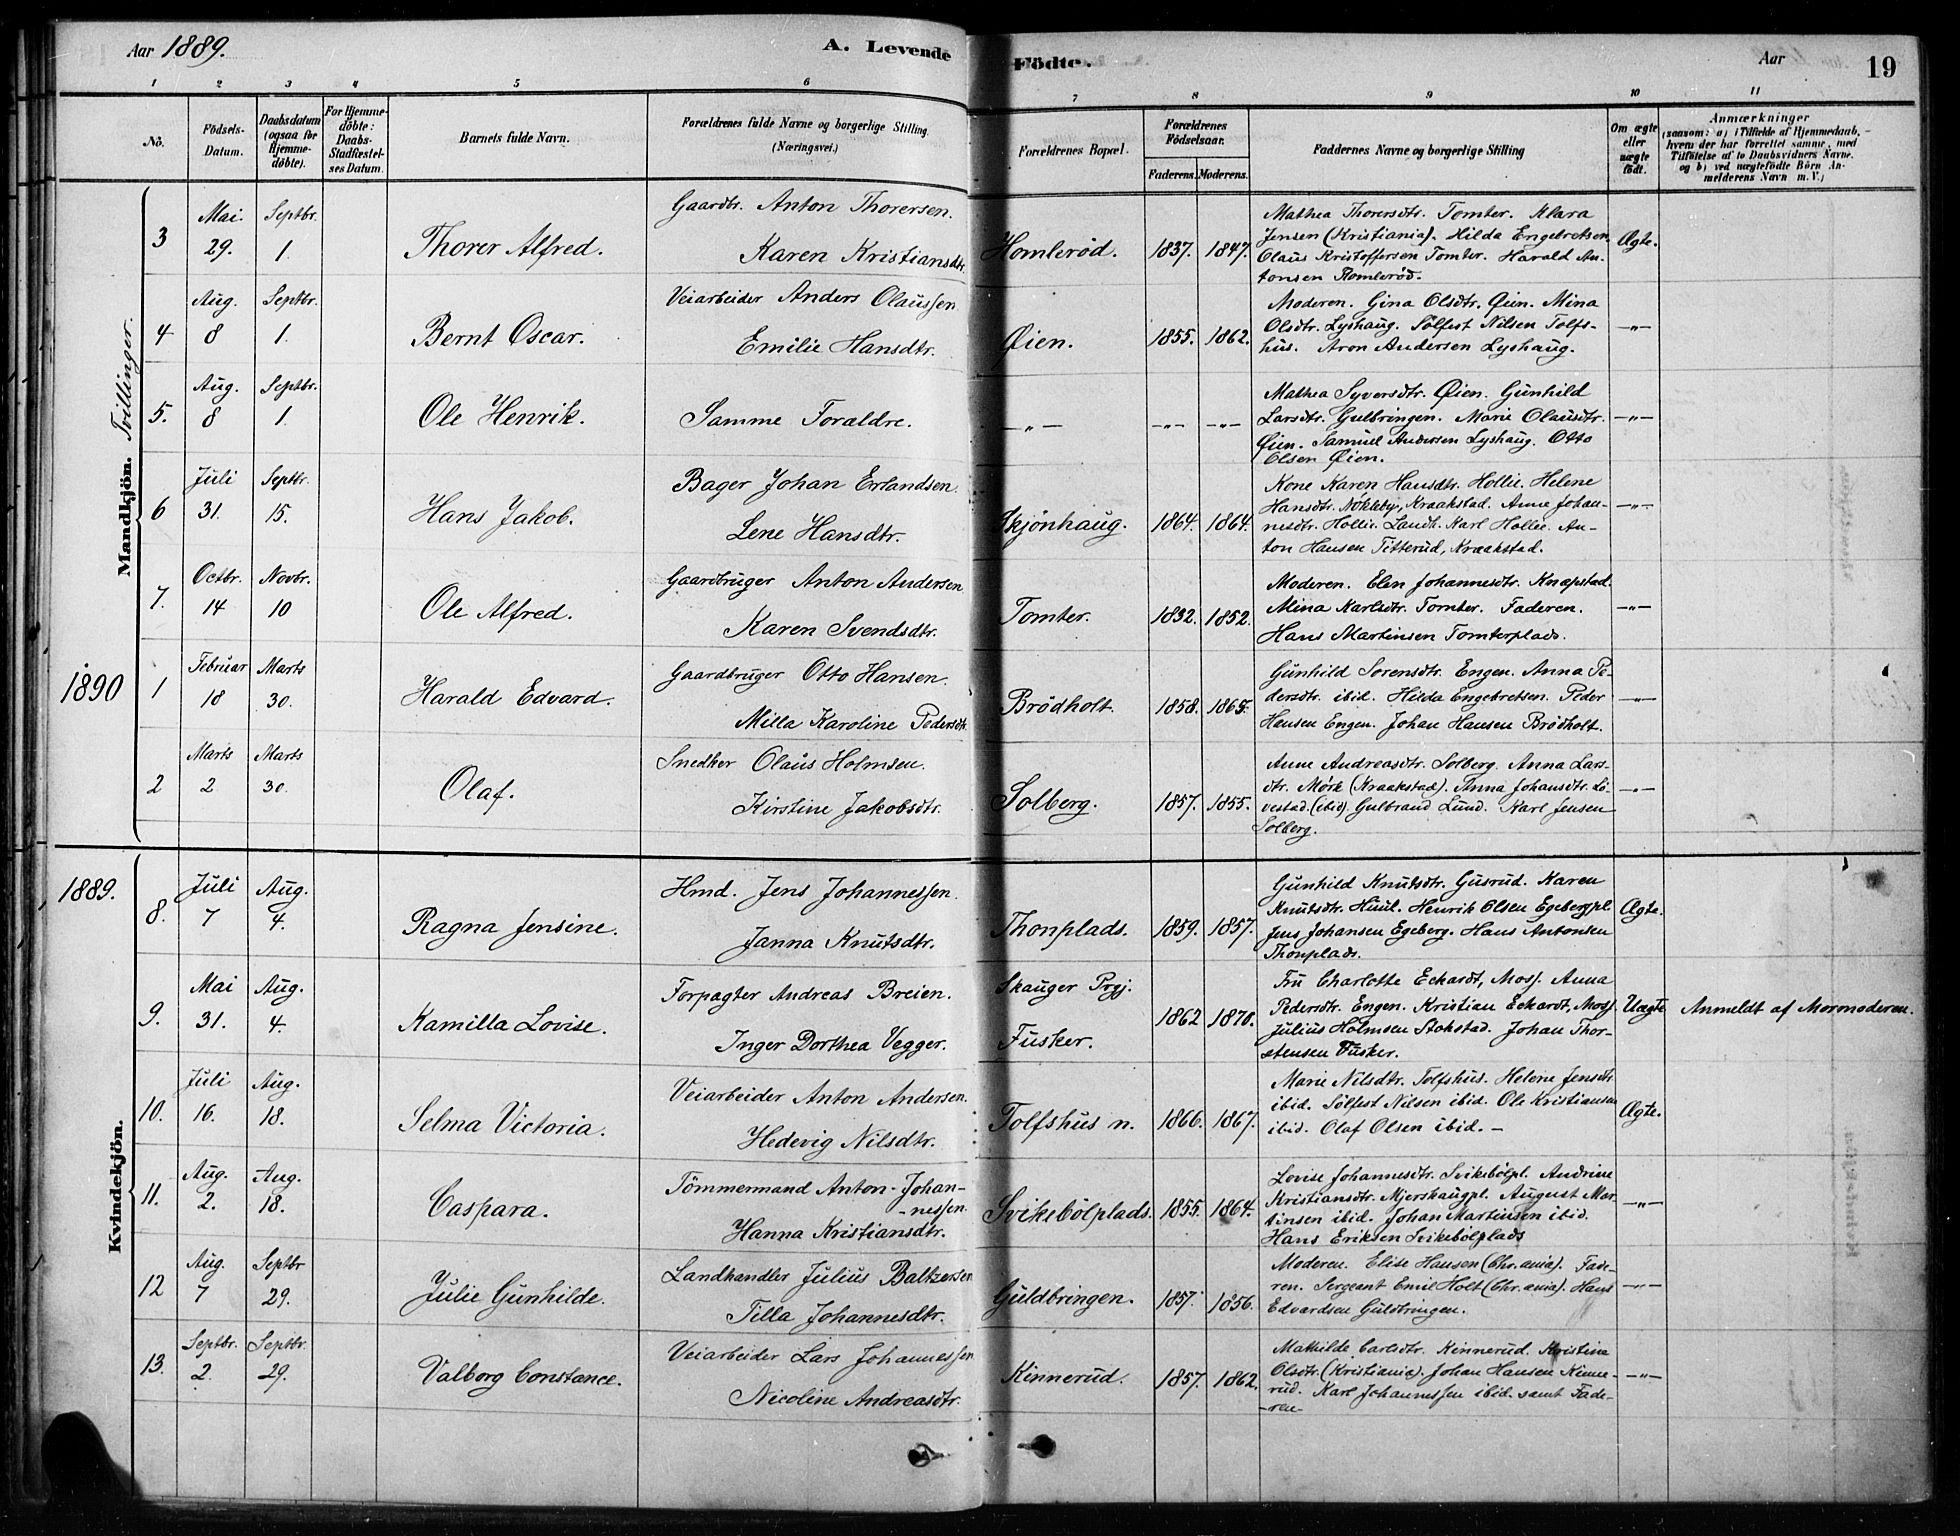 Aar 1889.
A. Levende
Födte.
Aar
19
1 2 3 4 5 6 7 8 9 10 11
No.
Födsels-
Datum.
Daabsdatum
(ogsaa for
Hjemme-
döbte).
For Hjemme-
döbte:
Daabs-
Stadfæstel-
ses Datum.
Barnets fulde Navn.
Forældrenes fulde Navne og borgerlige Stilling.
(Næringsvei.)
Forældrenes Bopæl.
Forældrenes
Födselsaar.
Faderens. Moderens.
Faddernes Navne og borgerlige Stilling
Om ægte
eller
uægte
födt.
Anmærkninger
(saasom: a) i Tilfælde af Hjemmedaab,
hvem der har forrettet samme, med
Tilföielse af to Daabsvidners Navne.
og b) ved uægtefödte Börn An-
melderens Navn m. V.)
Mandkjön. Tvillinger.
3
Mai. 29.
Septbr. 1.
Thorer Alfred.
Gaardbr. Anton Thorersen.
Karen Kristiansdtr.
Homlerød.
1837. 1847.
Mathea Thorersdtr. Tomter. Klara
Jensen (Kristiania). Hilda Engebretsen
Olaus Kristoffersen Tomter. Harald An-
tonsen Romlerød.
Ægte.
4
Aug. 8
Septbr. 1.
Bernt Oscar.
Veiarbeider Anders Olaussen
Emilie Hansdtr.
Øien.
1855. 1862.
Moderen. Gina Olsdtr. Øien. Mina
Olsdtr. Lyshaug. Sölfest Nilsen Tolfs-
hus. Aron Andersen Lyshaug.
—"—
5.
Aug. 8
Septbr. 1.
Ole Henrik.
Samme Foraldre.
—"—
—"— —"—
Mathea Syversdtr. Øien. Gunhild
Larsdtr. Gulbringen. Marie Olausdtr.
Øien. Samuel Andersen Lyshaug. Otto
Olsen Øien.
—"—
6
Juli 31.
Septbr. 15.
Hans Jakob.
Bager Johan Erlandsen.
Lene Hansdtr.
Skjönhaug.
1864. 1864.
Kone Karen Hansdtr. Hollie. Helene
Hansdtr. Nökleby, Kraakstad. Anne Johan-
nesdtr. Hollie. Landh. Karl Hollie. An-
ton Hansen Titterud, Kraakstad.
—"—
7.
Octbr. 14
Novbr. 10
Ole Alfred.
Gaardbruger Anton Andersen
Karen Svendsdtr.
Tomter.
1832. 1852.
Moderen. Elen Johannesdtr. Knapstad
Mina Karlsdtr. Tomter. Faderen.
Hans Martinsen Tomterplads.
—"—
1890
1
Februar 18
Marts 30.
Harald Edvard.
Gaardbruger Otto Hansen.
Milla Karoline Pedersdtr.
Brödholt.
1858. 1865.
Gunhild Sorensdtr. Engen. Anna Pe-
dersdtr. ibid. Hilda Engebretsen. Peder
Hansen Engen. Johan Hansen Brödholt.
—"—
2
Marts 2
Marts 30.
Olaf.
Snedker Olaus Holmsen.
Kirstine Jakobsdtr.
Solberg.
1857. 1855.
Anne Andreasdtr. Solberg. Anna Lars-
dtr. Mörk (Kraakstad). Anna Johansdtr. Lö-
vestad. (ibid) Gulbrand Lund. Karl Jensen
Solberg.
—"—
1889.
Kvindekjön.
8.
Juli 7
Aug. 4.
Ragna Jensine.
Hmd. Jens Johannessen.
Janna Knutsdtr.
Thonplads.
1859. 1857.
Gunhild Knutsdtr. Gusrud. Karen
Knutsdtr. Huul. Henrik Olsen Egebergpl.
Jens Johansen Egeberg. Hans Antonsen
Thonplads.
Ægte.
9.
Mai 31.
Aug. 4.
Kamilla Lovise.
Forpagter Andreas Breien.
Inger Dorthea Vegger.
Skauger Prgj.
Fusker.
1862 1870.
Fru Charlotte Eckardt, Moss. Anna
Pedersdtr. Engen. Kristian Eckardt, Moss.
Julius Holmsen Stokstad. Johan Thor-
stensen Fusker.
Uægte
Anmeldt af Mormoderen.
10.
Juli 16.
Aug. 18.
Selma Victoria.
Veiarbeider Anton Andersen.
Hedevig Nilsdtr.
Tolfshus n.
1866. 1867.
Marie Nilsdtr. Tolfshus. Helene Jensdtr.
ibid. Sölfest Nilsen ibid. Ole Kristiansen
ibid. Olaf Olsen ibid. —
Ægte.
11.
Aug. 2.
Aug. 18.
Caspara.
Tömmermand Anton Johan-
-nessen.
Hanna Kristiansdtr.
Svikebölplads.
1855. 1864.
Lovise Johannesdtr. Svikebölpl. Andrine
Kristiansdtr. Mjerskaugpl. August Mar-
tinsen ibid. Johan Martinsen ibid.
Hans Eriksen Svikebölplads
—"—
12
Aug. 7
Septbr 29.
Julie Gunhilde.
Landhandler Julius Baltzersen
Tilla Johannesdtr.
Guldbringen.
1857. 1856.
Moderen. Elise Hansen (Chr.ania). Fade-
ren. Sergeant Emil Holt (Chr.ania). Hans
Edvardsen Guldbringen.
—"—
13.
Septbr. 2.
Septbr. 29.
Valborg Constance.
Veiarbeider Lars Johannessen
Nicoline Andreasdtr.
Kinnerud.
1857. 1862.
Mathilde Carlsdtr. Kinnerud. Kristine
Olsdtr. (Kristiania). Johan Hansen Kinne-
rud. Karl Johannessen ibid. samt Fade-
-ren-
—"—